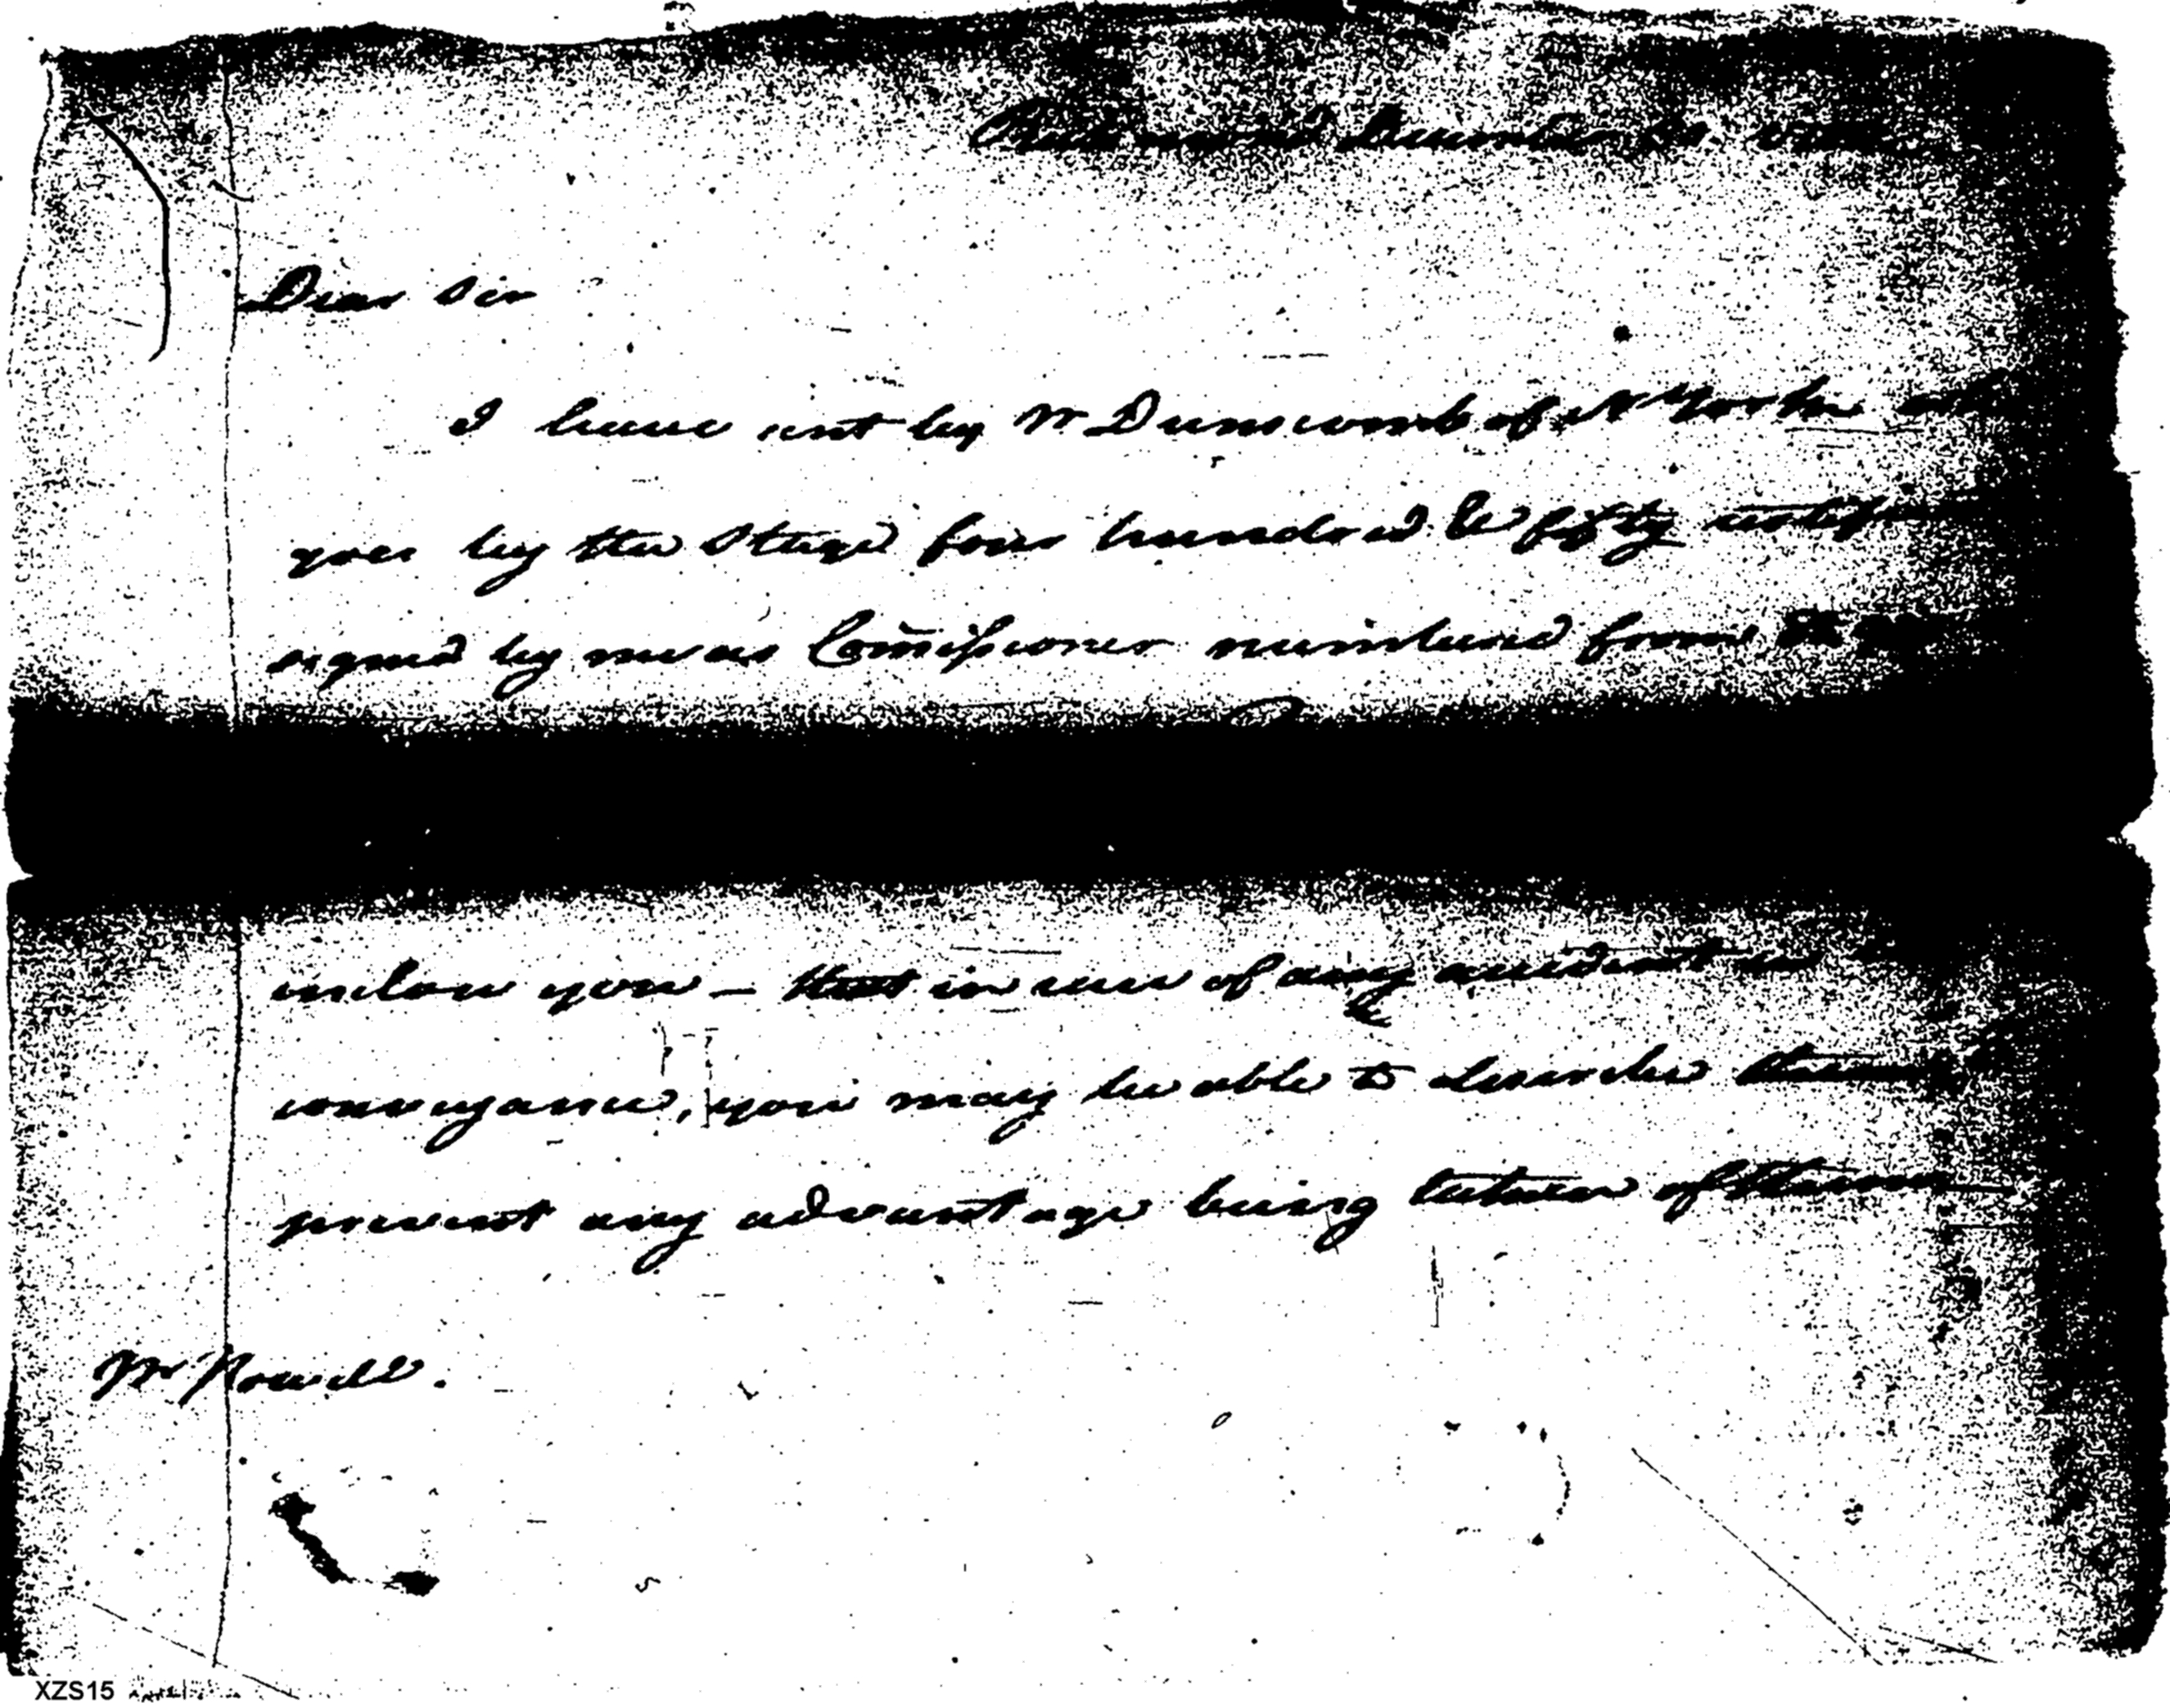 Richmond December
Dear Sir
I have sent by Mr Dunscomb of N York
goes by the Stage four hundred & fifty
signed by me as Comissioner numbered from
inclose you - that in case of any accident in
conveyance, you may be able to describe them
prevent any advantage being taken of them
Mr Nowell.
XZS15